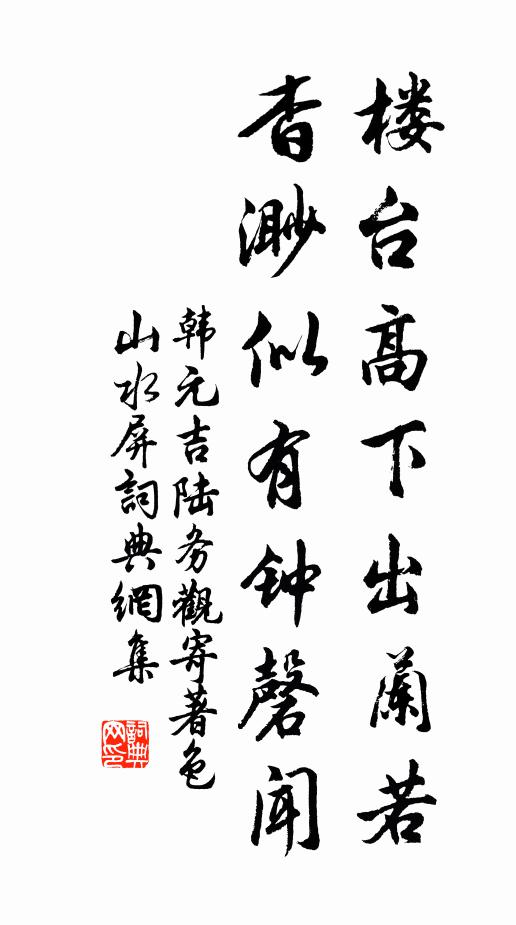 楼台高下出蘭若
杳渺似有钟磬闻
韩元吉陆务觀寄著色
山水屏詞典網集
詞典網印